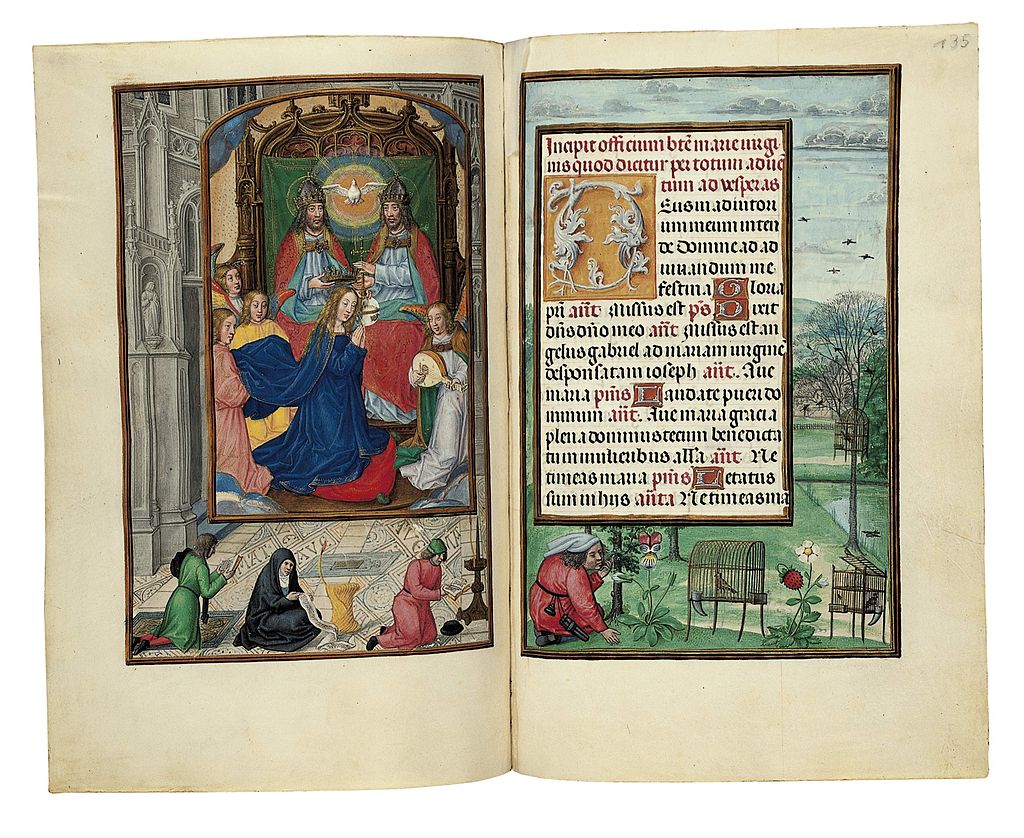 135
Incipit officium bte marie uirgi
nis quod dicitur per totum adue
tum ad vesperas
Deus in adiutori
um meum inten
de Domine ad ad
iuuandum me
festina Gloria
pri ant. Missus est ps Dixit
dns dno meo ant Missus est an
gelus gabriel ad mariam uirgine
desponsatam ioseph ant. Aue
maria pmus Laudate pueri do
minum ant. Aue maria gracia
plena dominus tecum benedicta
tu in mulieribus alla ant Ne
timeas maria pmus Letatus
sum in hijs anta Ne timeas ma